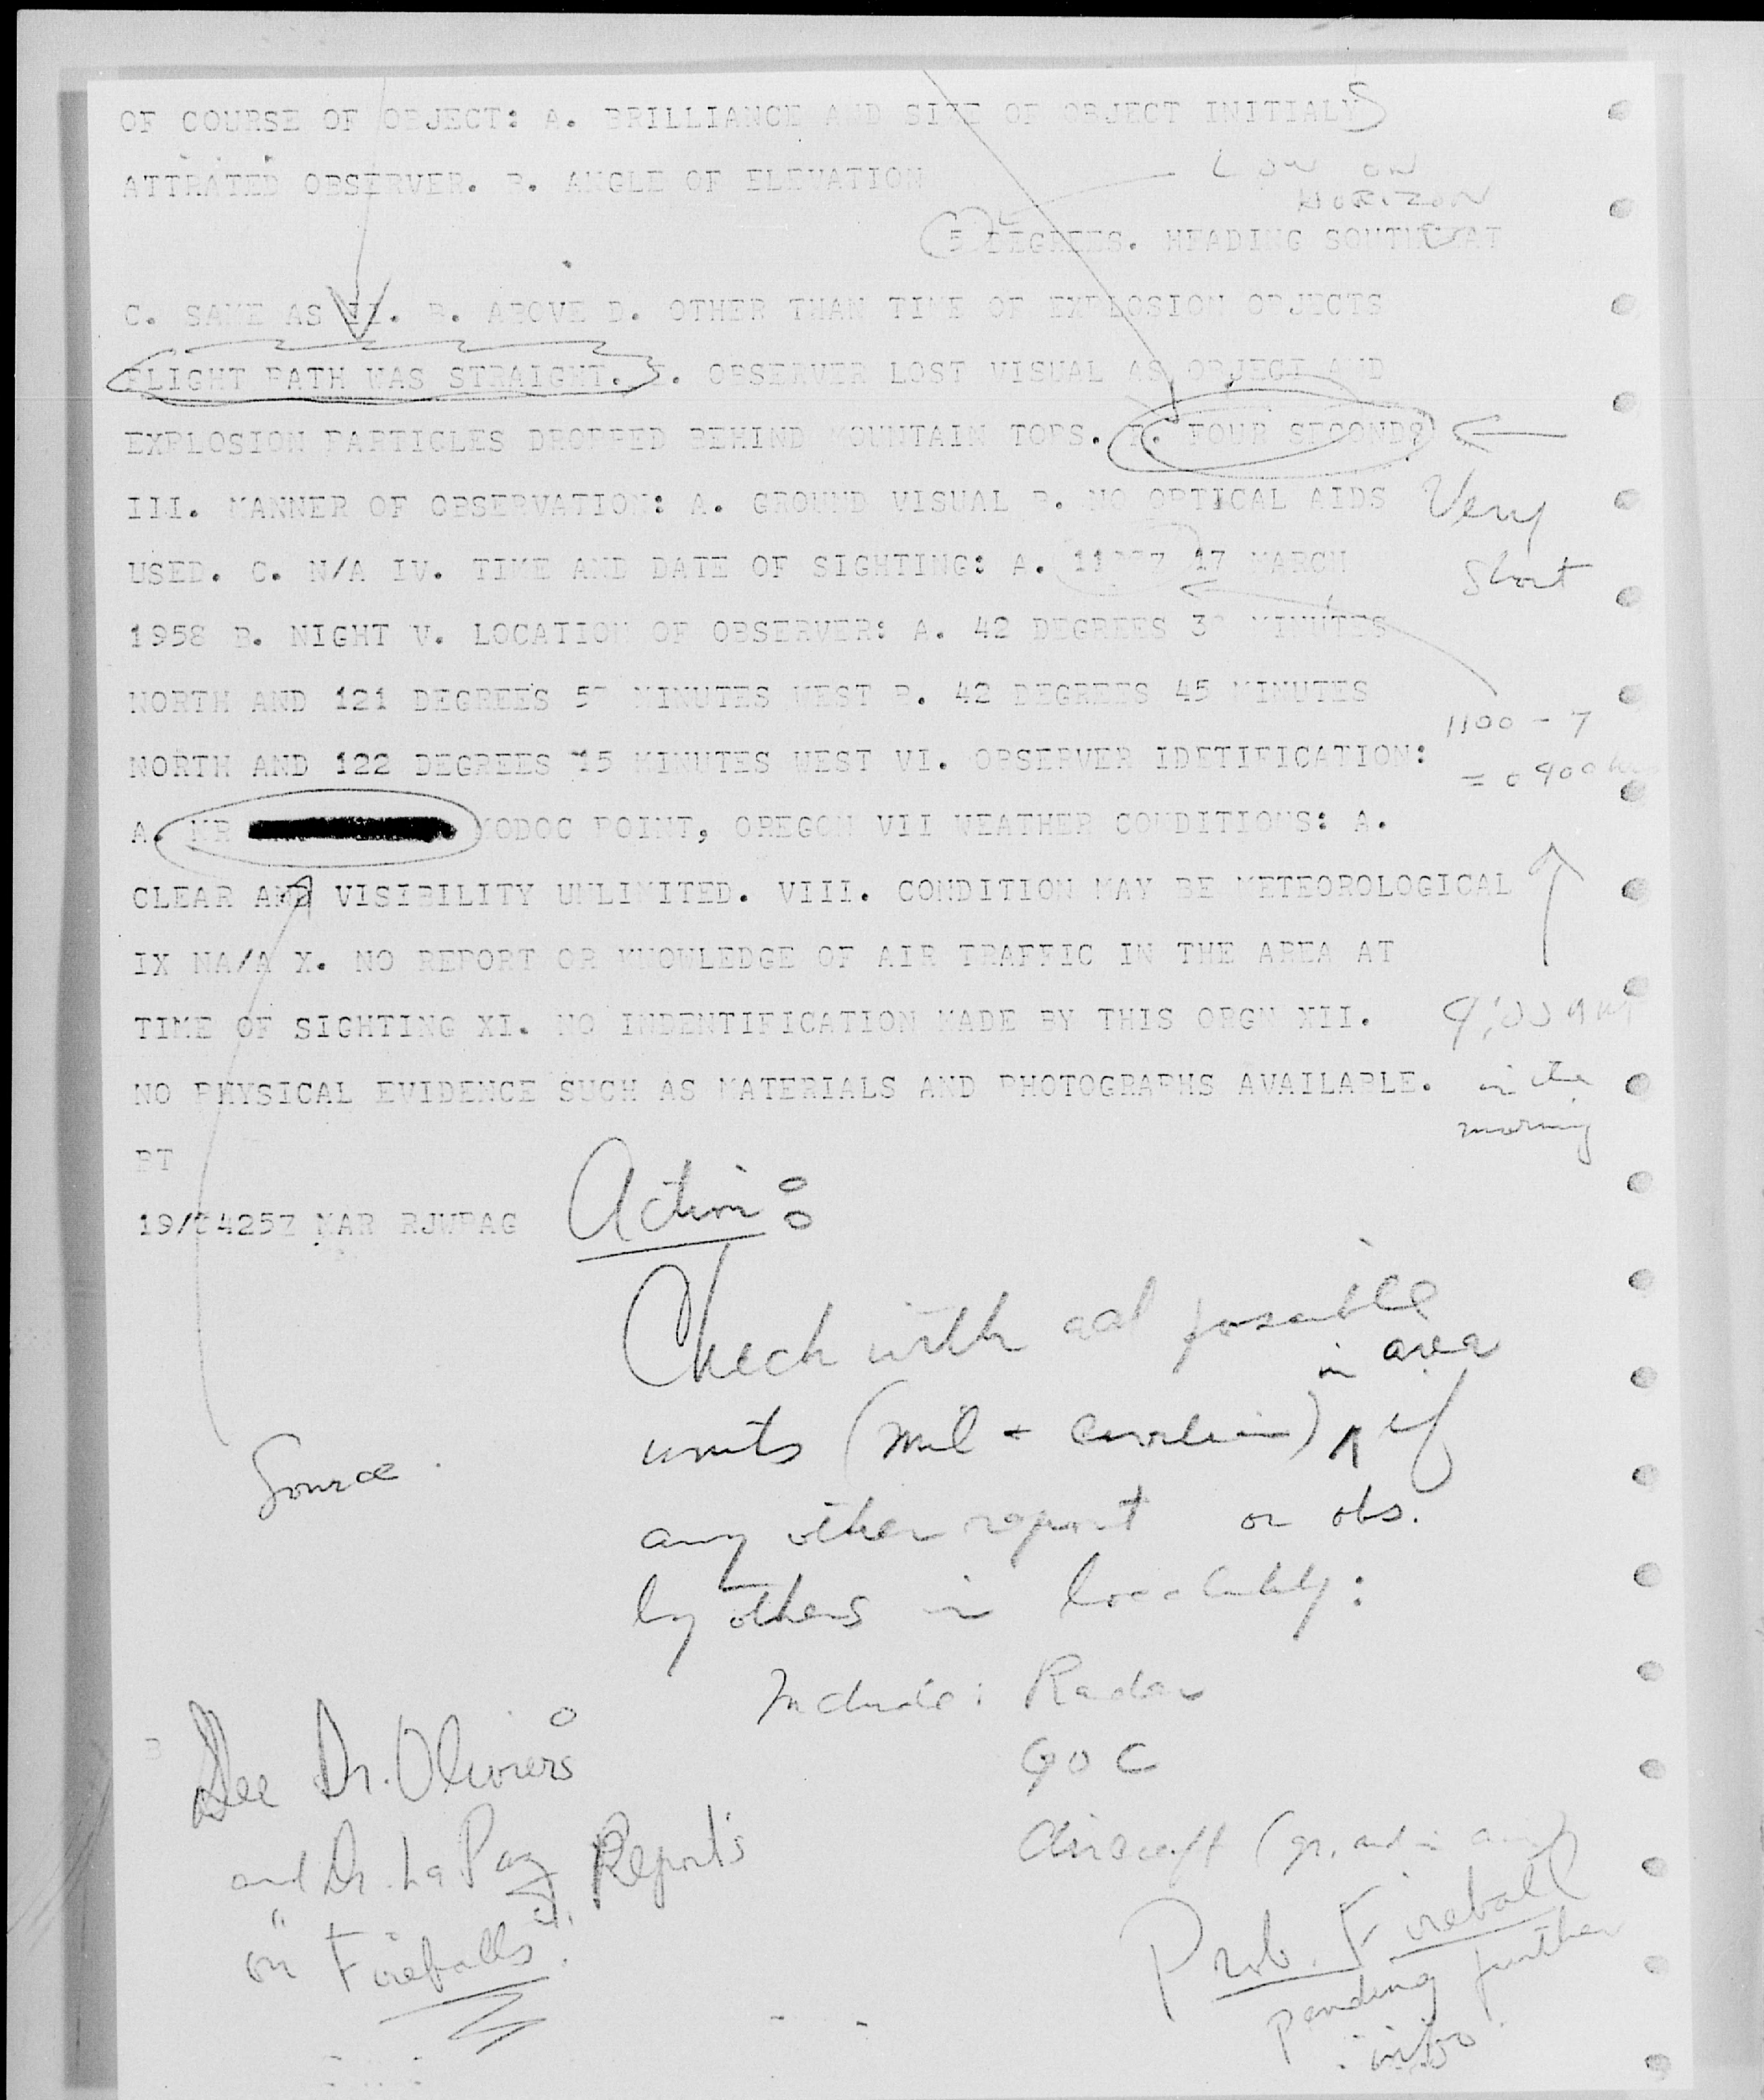 OF COURSE OF OBJECT: A. BRILLIANCE AND SIZE OF OBJECT INITIALY
ATTRATED OBSERVER. B. ANGLE OF ELEVATION
LOW ON
HORIZON
5 DEGREES. HEADING
C. SAME AS II. B. ABOVE D. OTHER THAN TIME OF EXPLOSION OBJECTS
FLIGHT PATH WAS STRAIGHT. E. OBSERVER LOST VISUAL AS OBJECT AND
EXPLOSION PARTICLES DROPPED BEHIND MOUNTAIN TOPS. F. FOUR SECONDS
III. MANNER OF OBSERVATION: A. GROUND VISUAL B. NO OPTICAL AIDS
Very
short
USED. C. N/A IV. TIME AND DATE OF SIGHTING: A. 17 MARCH
1958 B. NIGHT V. LOCATION OF OBSERVER: A. 42 DEGREES MINUTES
NORTH AND 121 DEGREES MINUTES WEST B. 42 DEGREES 45 MINUTES
1100 - 7
NORTH AND 122 DEGREES 15 MINUTES WEST VI. OBSERVER IDETIFICATION:
= 0900
A. MR MODOC POINT, OREGON VII WEATHER CONDITIONS: A.
CLEAR AND VISIBILITY UNLIMITED. VIII. CONDITION MAY BE METEOROLOGICAL
IX NA/A X. NO REPORT OR KNOWLEDGE OF AIR TRAFFIC IN THE AREA AT
TIME OF SIGHTING XI. NO INDENTIFICATION MADE BY THIS ORGN XII.
9:00 am
in the
morning
NO PHYSICAL EVIDENCE SUCH AS MATERIALS AND PHOTOGRAPHS AVAILABLE.
BT
19/0425Z MAR RJWPAG
Action:
Check with all possible
units (mil + civilian) in area if
any other report or obs.
by others in locality:
Source.
Include: Radar
GOC
Aircraft (gr. and in
See Dr. Oliviers
and Dr. La Paz Reports
on "Fireballs".
Prob. Fireball
pending further
info.